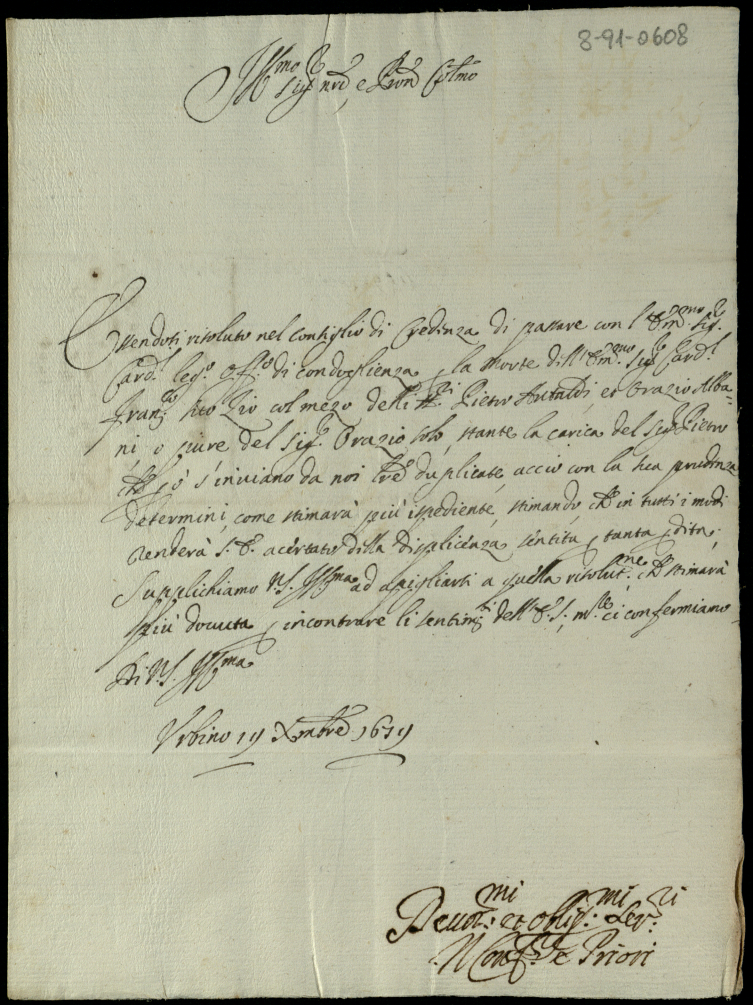 8-91-0608
Ill.mo Sig.r nro e Pron Colmo
Essendosi risoluto nel consiglio di Credenza di passare con l'Em.mo Sig.r
Card.l leg.o off.o di condoglienza p la Morte dell'Em.mo Sig.r Card.l
Fran.co suo Zio col mezo delli SS.ri Pietro Antaldi, et Orazio Alba-
ni, o pure del Sig.r Orazio solo, stante la carica del Sig.r Pietro
che p ciò s'inviano da noi lre duplicate acciò con la sua prudenza
determini, come stimarà più ispediente, stimando, che in tutti i modi
renderà S. E. acertato della displicenza sentita p tanta pdita.
Supplichiamo V.S. Ill.ma ad apigliarsi a quella risolut.ne che stimarà
più dovuta p incontrare li sentim.ti dell'E. S. m.te ci confermiamo
Di V.S. Ill.ma
Urbino 19 Xmbre 1679
Devot.mi et oblig.mi Ser.ri
Il Conf.re e Priori